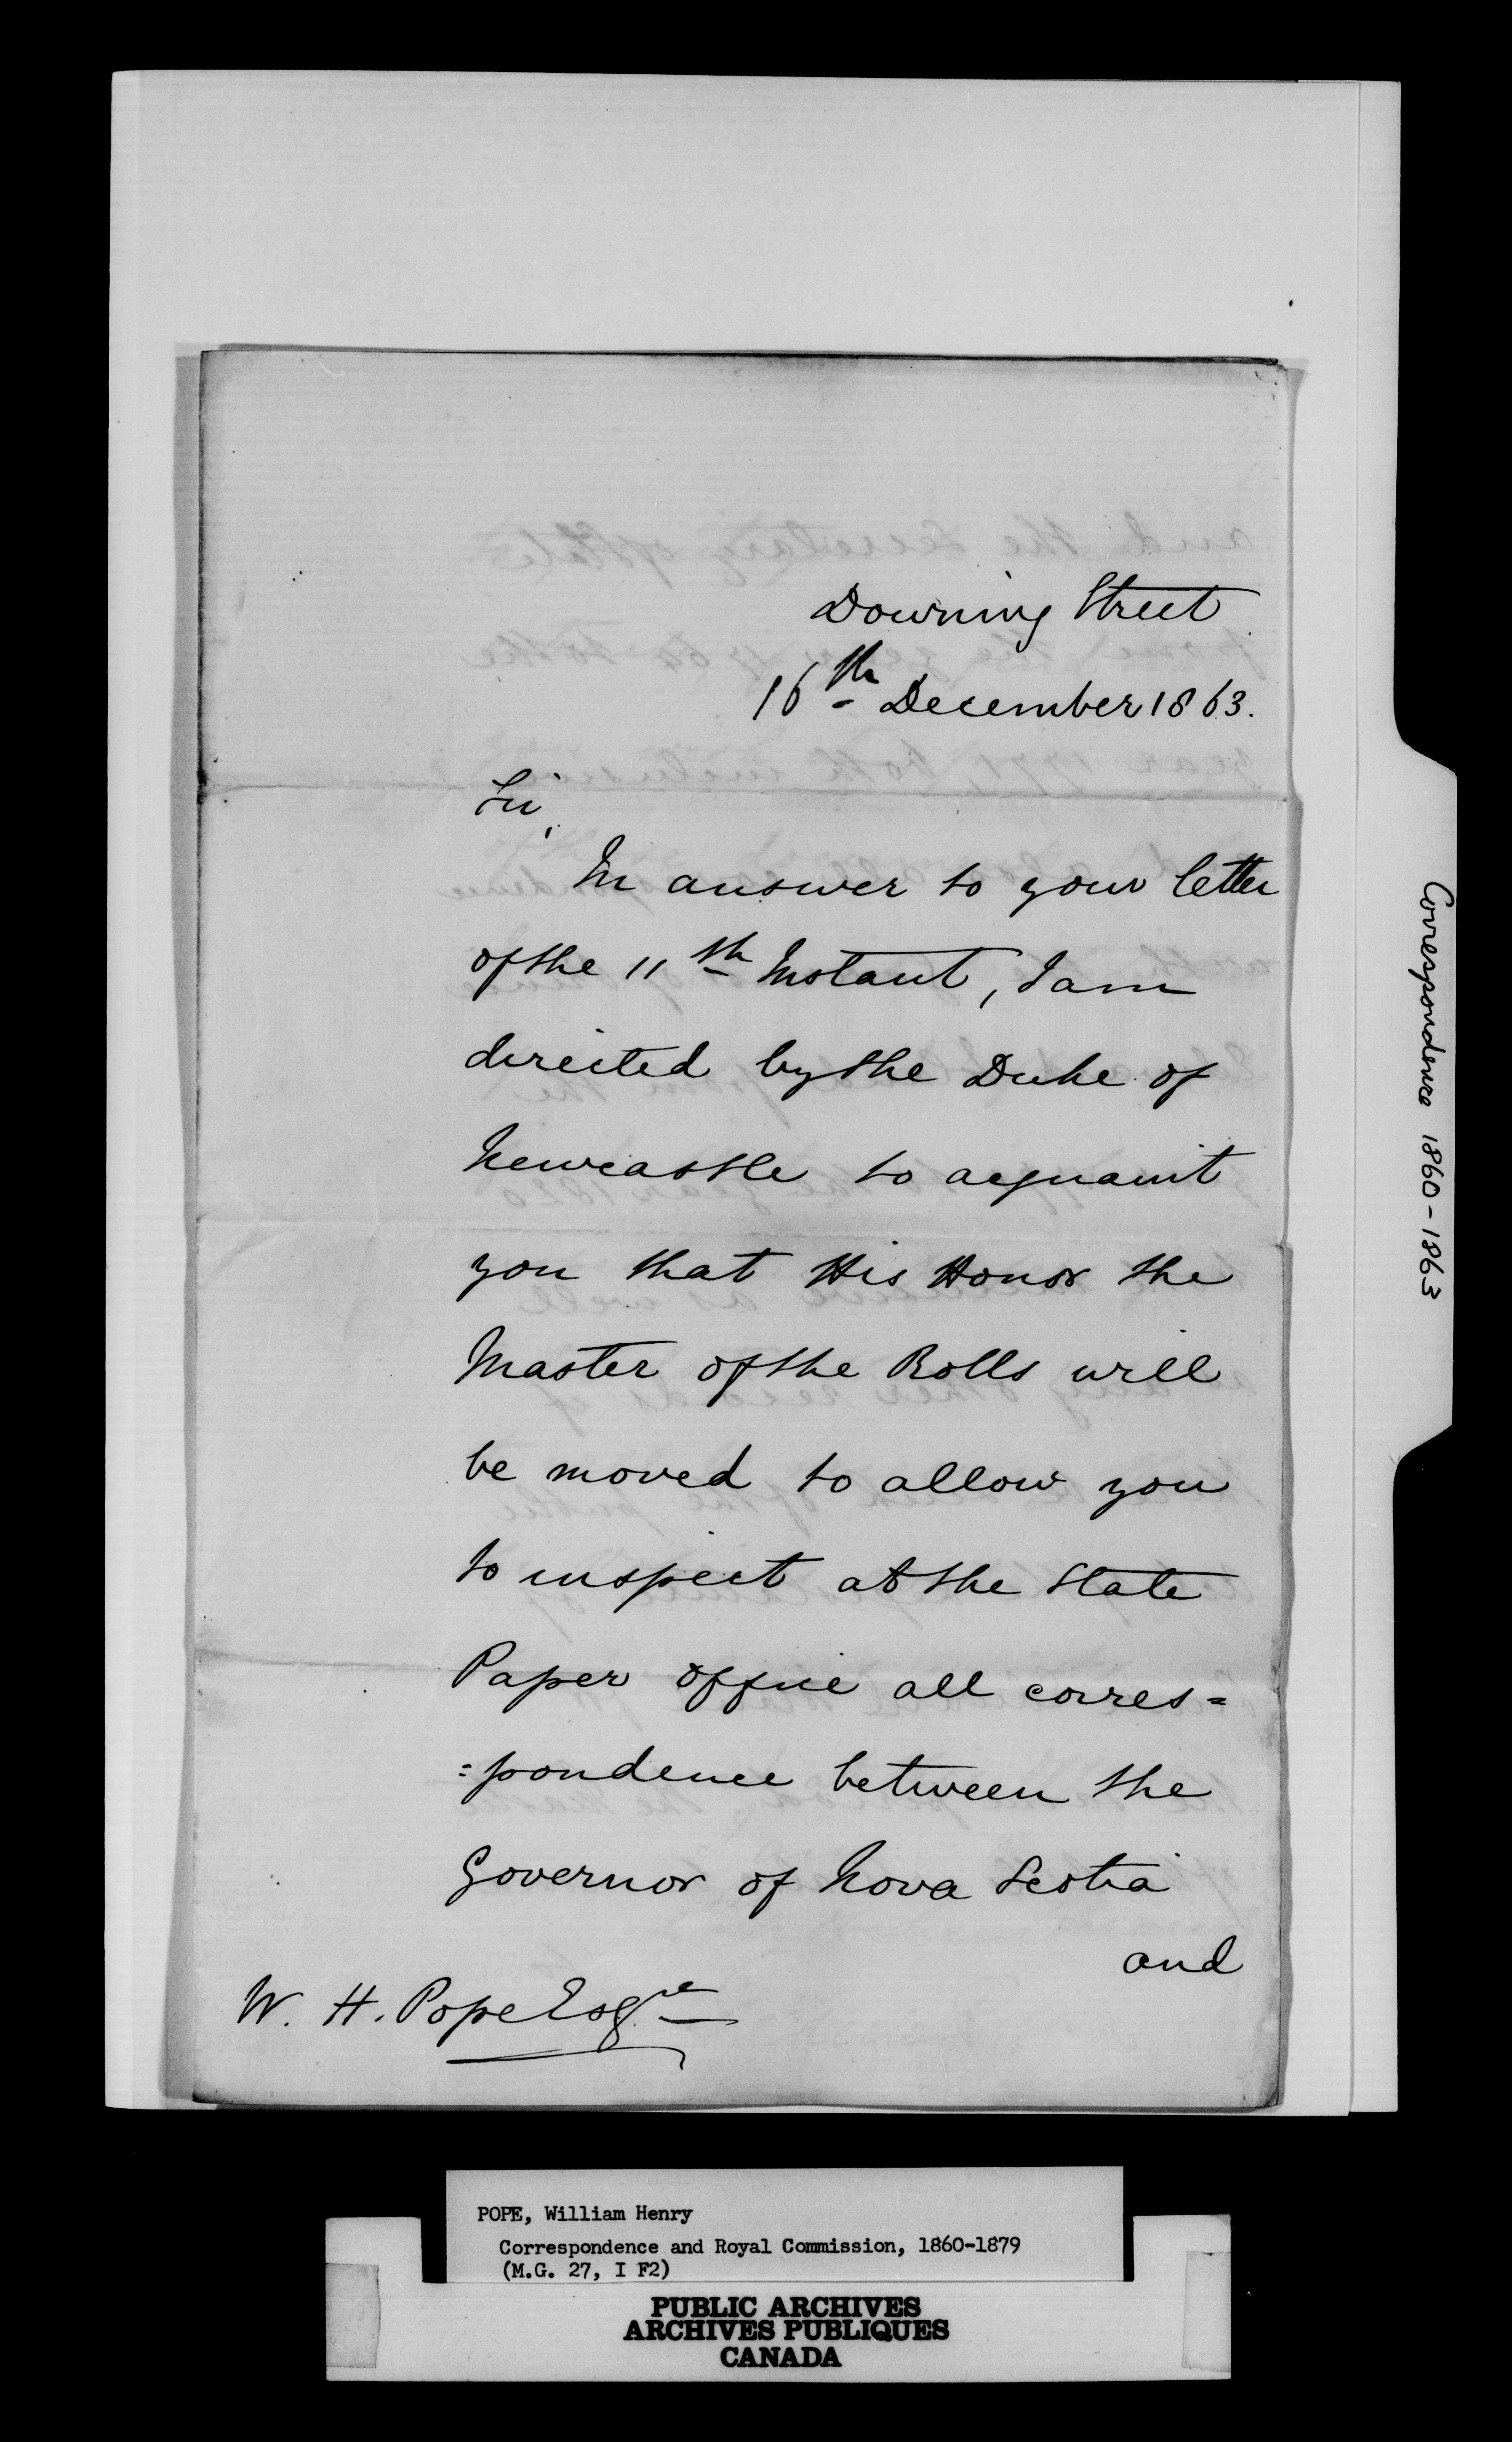 Downing Street
16th December 1863.
Sir,
In answer to your letter
of the 11th Instant, I am
directed by the Duke of
Newcastle to acquaint
you that His Honor the
Master of the Rolls will
be moved to allow you
to inspect at the State
Paper office all corres=
=pondence between the
Governor of Nova Scotia
and
W. H. Pope Esqre
Correspondence 1860-1863
POPE, William Henry
Correspondence and Royal Commission, 1860-1879
(M.G. 27, I F2)
PUBLIC ARCHIVES
ARCHIVES PUBLIQUES
CANADA